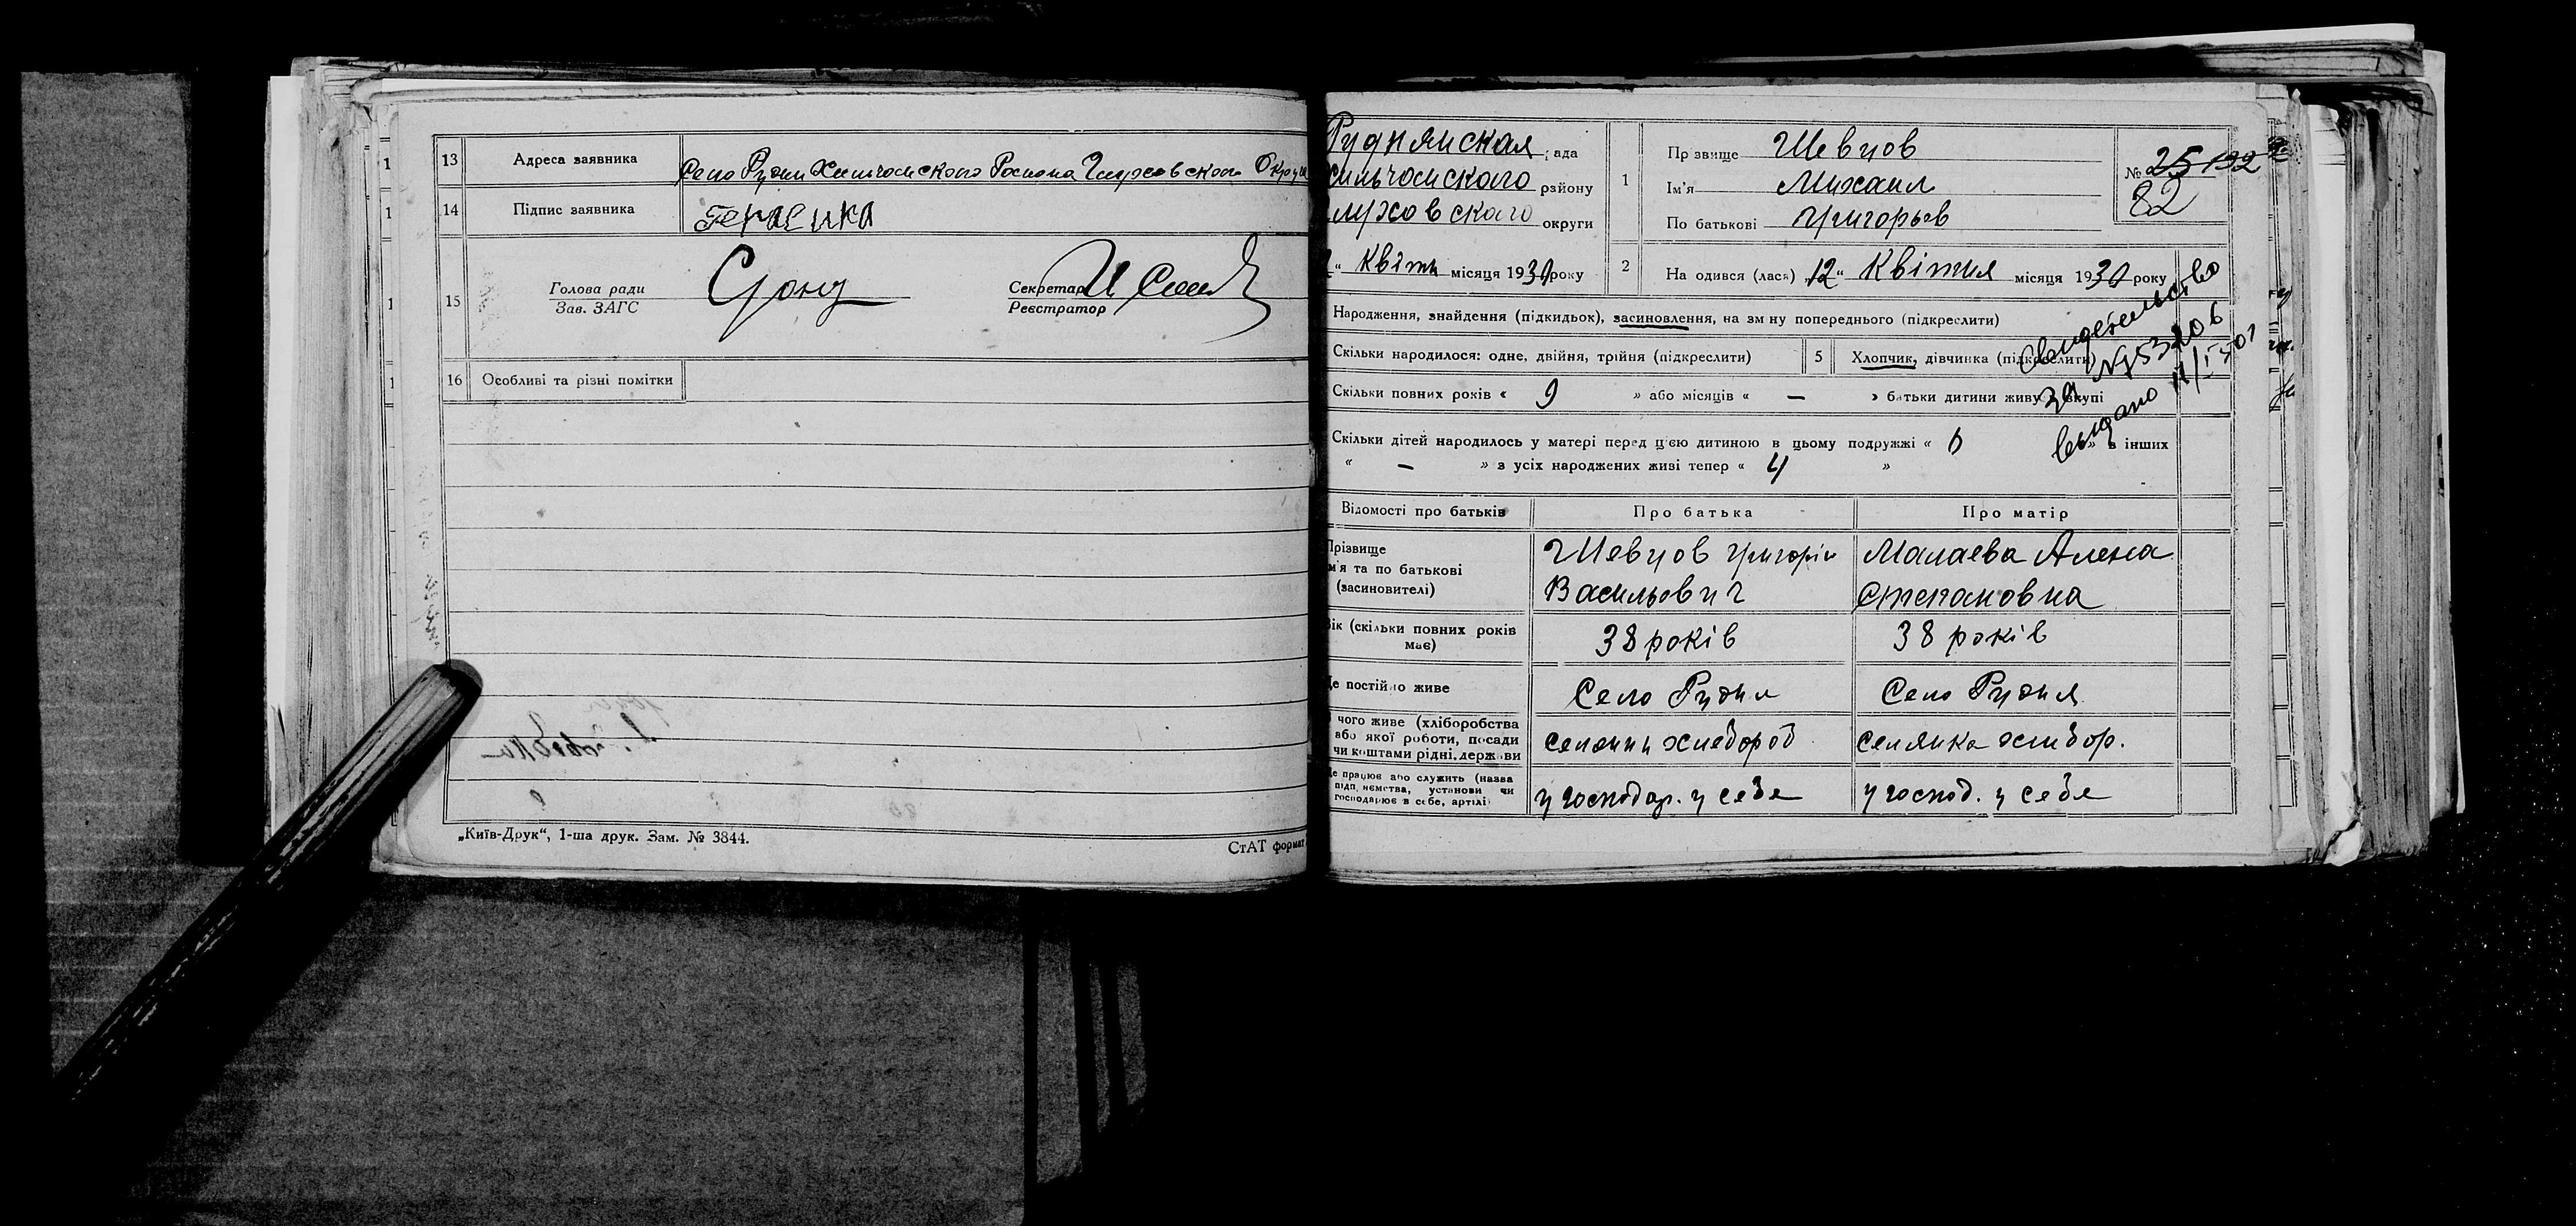 13 Адреса заявника Село Рудни Хильчанского Района Глуховского Округи
14 Підпис заявника
15 Голова ради
Зав. ЗАГС
Секретар
Реєстратор
16 Особливі та різні помітки
„Київ-Друк“, 1-ша друк. Зам. № 3844.
СтАТ формат
Руднянская рада
хильчанского району
луховского округи
“ Квітн місяця 1930 року
1 Прізвище Шевцов
Ім’я Михаил
По батькові Григорьев
№ 25 192
82
2 На одився (лася) „12“ Квітня місяця 1930 року
Народження, знайдення (підкидьок), засиновлення, на зм ну попереднього (підкреслити)
Скільки народилося: одне, двійня, трійня (підкреслити)
5 Хлопчик, дівчинка (підкреслити)
Свидетельство
за №
выдано
Скільки повних років « 9 » або місяців « — » батьки дитини живуть вкупі
Скільки дітей народилось у матері перед цією дитиною в цьому подружжі « » в інших
« — » з усіх народжених живі тепер « 4 »
Відомості про батьків Про батька Про матір
Прізвище
м’я та по батькові
(засиновителі)
Шевцов Григорій
Васильович
Малаева Алена
Степановна
Вік (скільки повних років
має)
38 років 38 років
Де постійно живе Село Рудня Село Рудня
чого живе (хліборобства
або якої роботи, посади
чи коштами рідні, держави
селянин хлебороб селянка хлибор.
Де працює або служить (назва
підп иємства, установи чи
господарює в себе, артілі)
у господар. у себе у господ. у себе